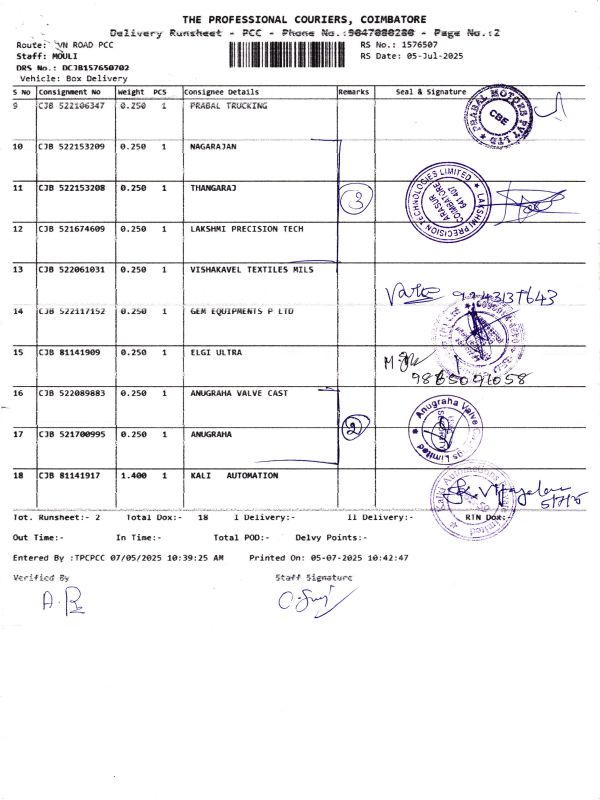 THE PROFESSIONAL COURIERS, COIMBATORE
Delivery Runsheet - PCC - Phone No.:9047080286 - Page No.:2
Route: VN ROAD PCC RS No.: 1576507
Staff: MOULI RS Date: 05-Jul-2025
DRS No.: DCJB157650702
Vehicle: Box Delivery
S No Consignment No Weight PCS Consignee Details Remarks Seal & Signature
9 CJB 522106347 0.250 1 PRABAL TRUCKING
PRABAL MOTORS PVT LTD
CBE
10 CJB 522153209 0.250 1 NAGARAJAN
11 CJB 522153208 0.250 1 THANGARAJ 3
LAKSHMI PRECISION TECHNOLOGIES LIMITED
ARASUR
COIMBATORE
641 407
12 CJB 521674609 0.250 1 LAKSHMI PRECISION TECH
13 CJB 522061031 0.250 1 VISHAKAVEL TEXTILES MILS
14 CJB 522117152 0.250 1 GEM EQUIPMENTS P LTD
15 CJB 81141909 0.250 1 ELGI ULTRA
16 CJB 522089883 0.250 1 ANUGRAHA VALVE CAST
17 CJB 521700995 0.250 1 ANUGRAHA 2
Anugraha Valve Castings Limited
SECURITY
18 CJB 81141917 1.400 1 KALI AUTOMATION
5/7/25
Tot. Runsheet:- 2 Total Dox:- 18 I Delivery:- II Delivery:- RTN Dox:-
Out Time:- In Time:- Total POD:- Delvy Points:-
Entered By :TPCPCC 07/05/2025 10:39:25 AM Printed On: 05-07-2025 10:42:47
Verified By Staff Signature